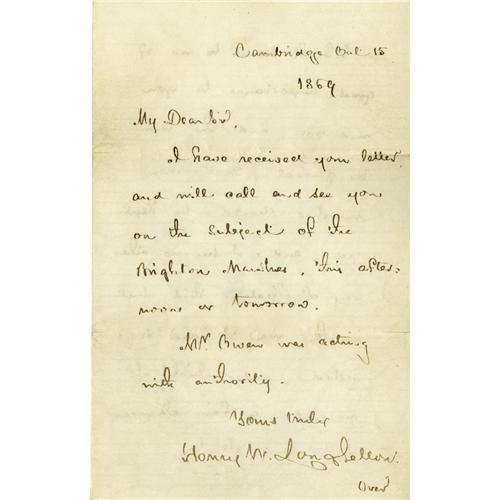 Cambridge Oct 15
1869
My Dear Sir,
I have received your letter
and will call and see you
on the subject of the
Brighton Marshes, this after-
noon or tomorrow.
Mr. Owen was acting
with authority.
Yours truly
Henry W. Longfellow.
over